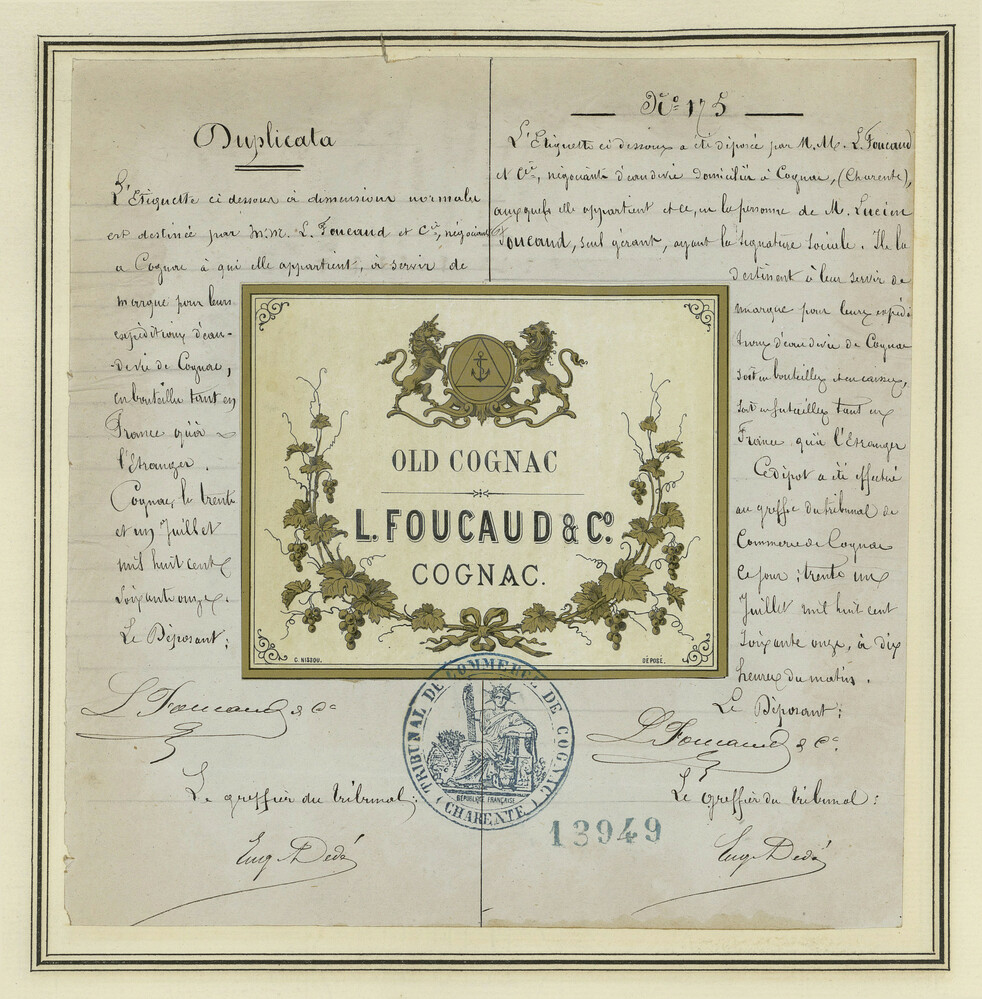 Duplicata
L'Etiquette ci dessous à dimensions normales
est destinée par M.M. L. Foucaud et Cie, négociants
a Cognac à qui elle appartient, à servir de
marque pour leurs
expéditions d'eau-
de vie de Cognac,
en bouteilles tant en
France qu'à
l'Etranger.
Cognac, le trente
et un Juillet
mil huit cent
soixante onze.
Le Déposant;
L. Foucaud & Ce
Le greffier du tribunal;
Eug Dedé
No 175
L'Etiquette ci dessous a été déposée par M.M. L. Foucaud
et Cie, négociants d'eau de vie domiciliés à Cognac, (Charente),
auxquels elle appartient et ce, en la personne de M. Lucien
Foucaud, seul gérant, ayant la signature sociale. Ils la
destinent à leur servir de
marque pour leurs expédi
tions d'eau de vie de Cognac
soit en bouteilles et en caisses,
soit en futailles tant en
France qu'à l'Etranger
Ce dépot a été effectué
au greffe du tribunal de
Commerce de Cognac
ce jour; trente un
Juillet mil huit cent
soixante onze, à dix
heures du matin.
Le Déposant;
L. Foucaud & Ce
Le Greffier du tribunal:
Eug Dedé
OLD COGNAC
L. FOUCAUD & Co.
COGNAC.
C. NISSOU.
DÉPOSÉ.
TRIBUNAL DE COMMERCE DE COGNAC
RÉPUBLIQUE FRANÇAISE
(CHARENTE)
13949